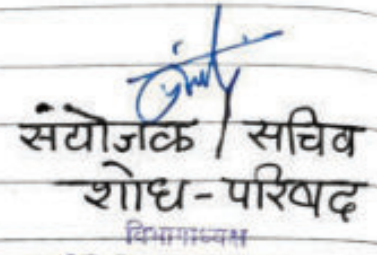 संयोजक / सचिव
शोध-परिषद
विभागाध्यक्ष